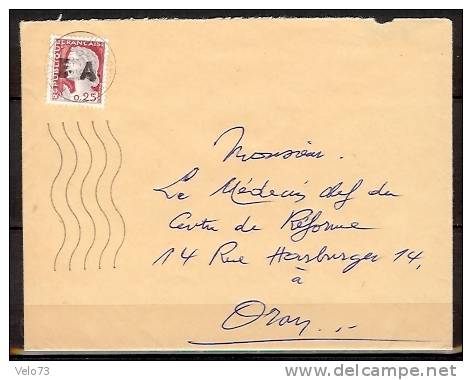 REPUBLIQUE FRANCAISE
EA
0,25
Monsieur.
Le Médecin chef du
Centre de Réforme
14 Rue Harsburger 14,
à
Oran...
Velo73
http://www.delcampe.net